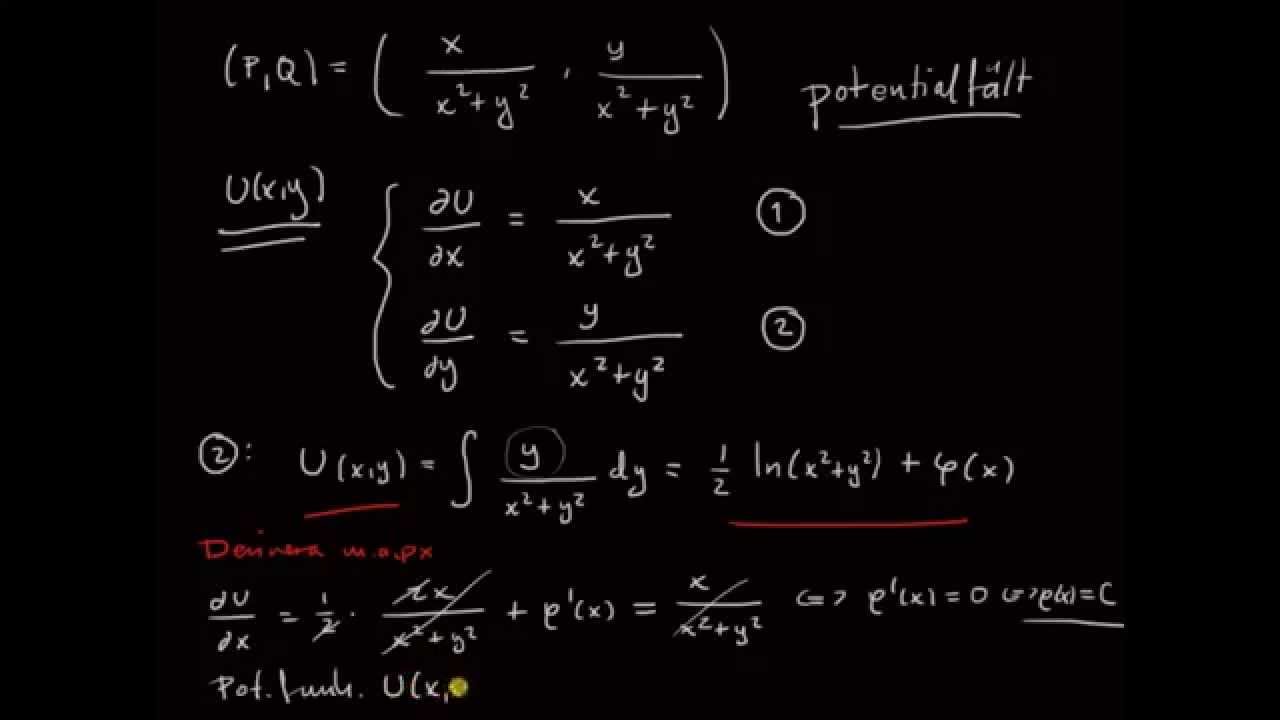 (P,Q) = ( x / (x²+y²) , y / (x²+y²) ) potentialfält
U(x,y) { ∂U/∂x = x / (x²+y²) ①
∂U/∂y = y / (x²+y²) ②
②: U(x,y) = ∫ y / (x²+y²) dy = 1/2 ln(x²+y²) + φ(x)
Derivera m.a.p x
∂U/∂x = 1/2 · 2x / (x²+y²) + φ'(x) = x / (x²+y²) <=> φ'(x) = 0 <=> φ(x) = C
Pot. funk. U(x,